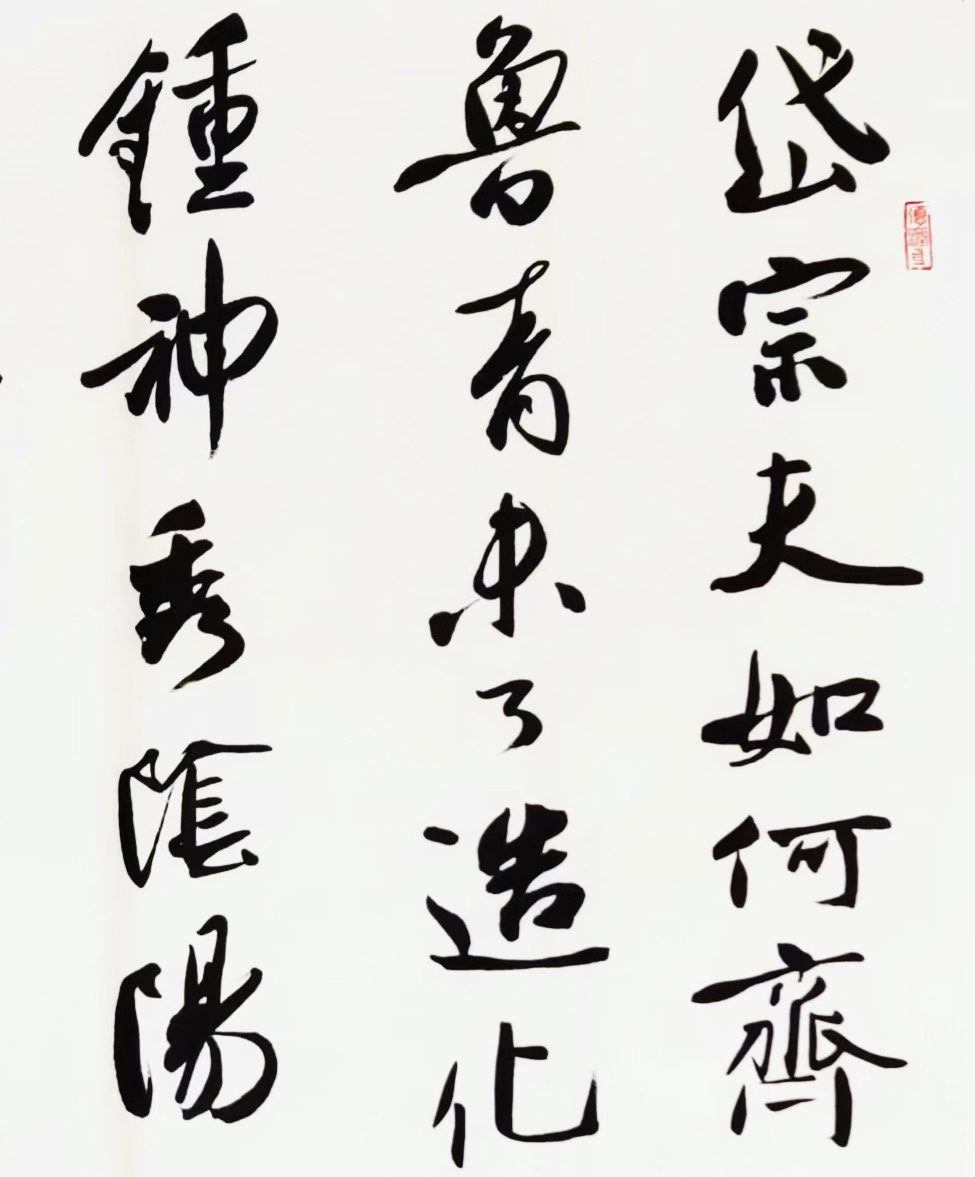 岱宗夫如何齊
魯青未了造化
鍾神秀陰陽